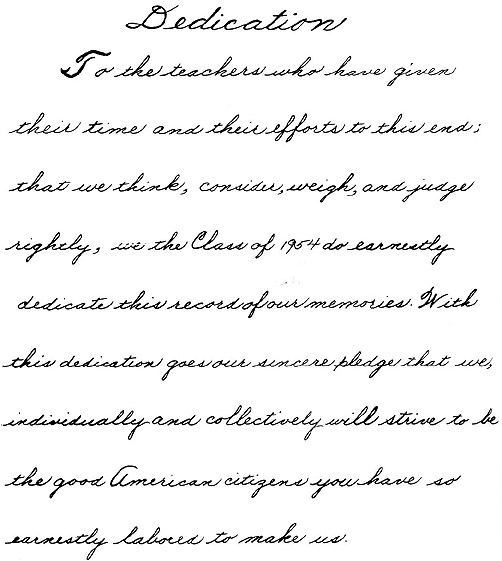 Dedication
To the teachers who have given
their time and their efforts to this end;
that we think, consider, weigh, and judge
rightly, we the Class of 1954 do earnestly
dedicate this record of our memories. With
this dedication goes our sincere pledge that we,
individually and collectively will strive to be
the good American citizens you have so
earnestly labored to make us.